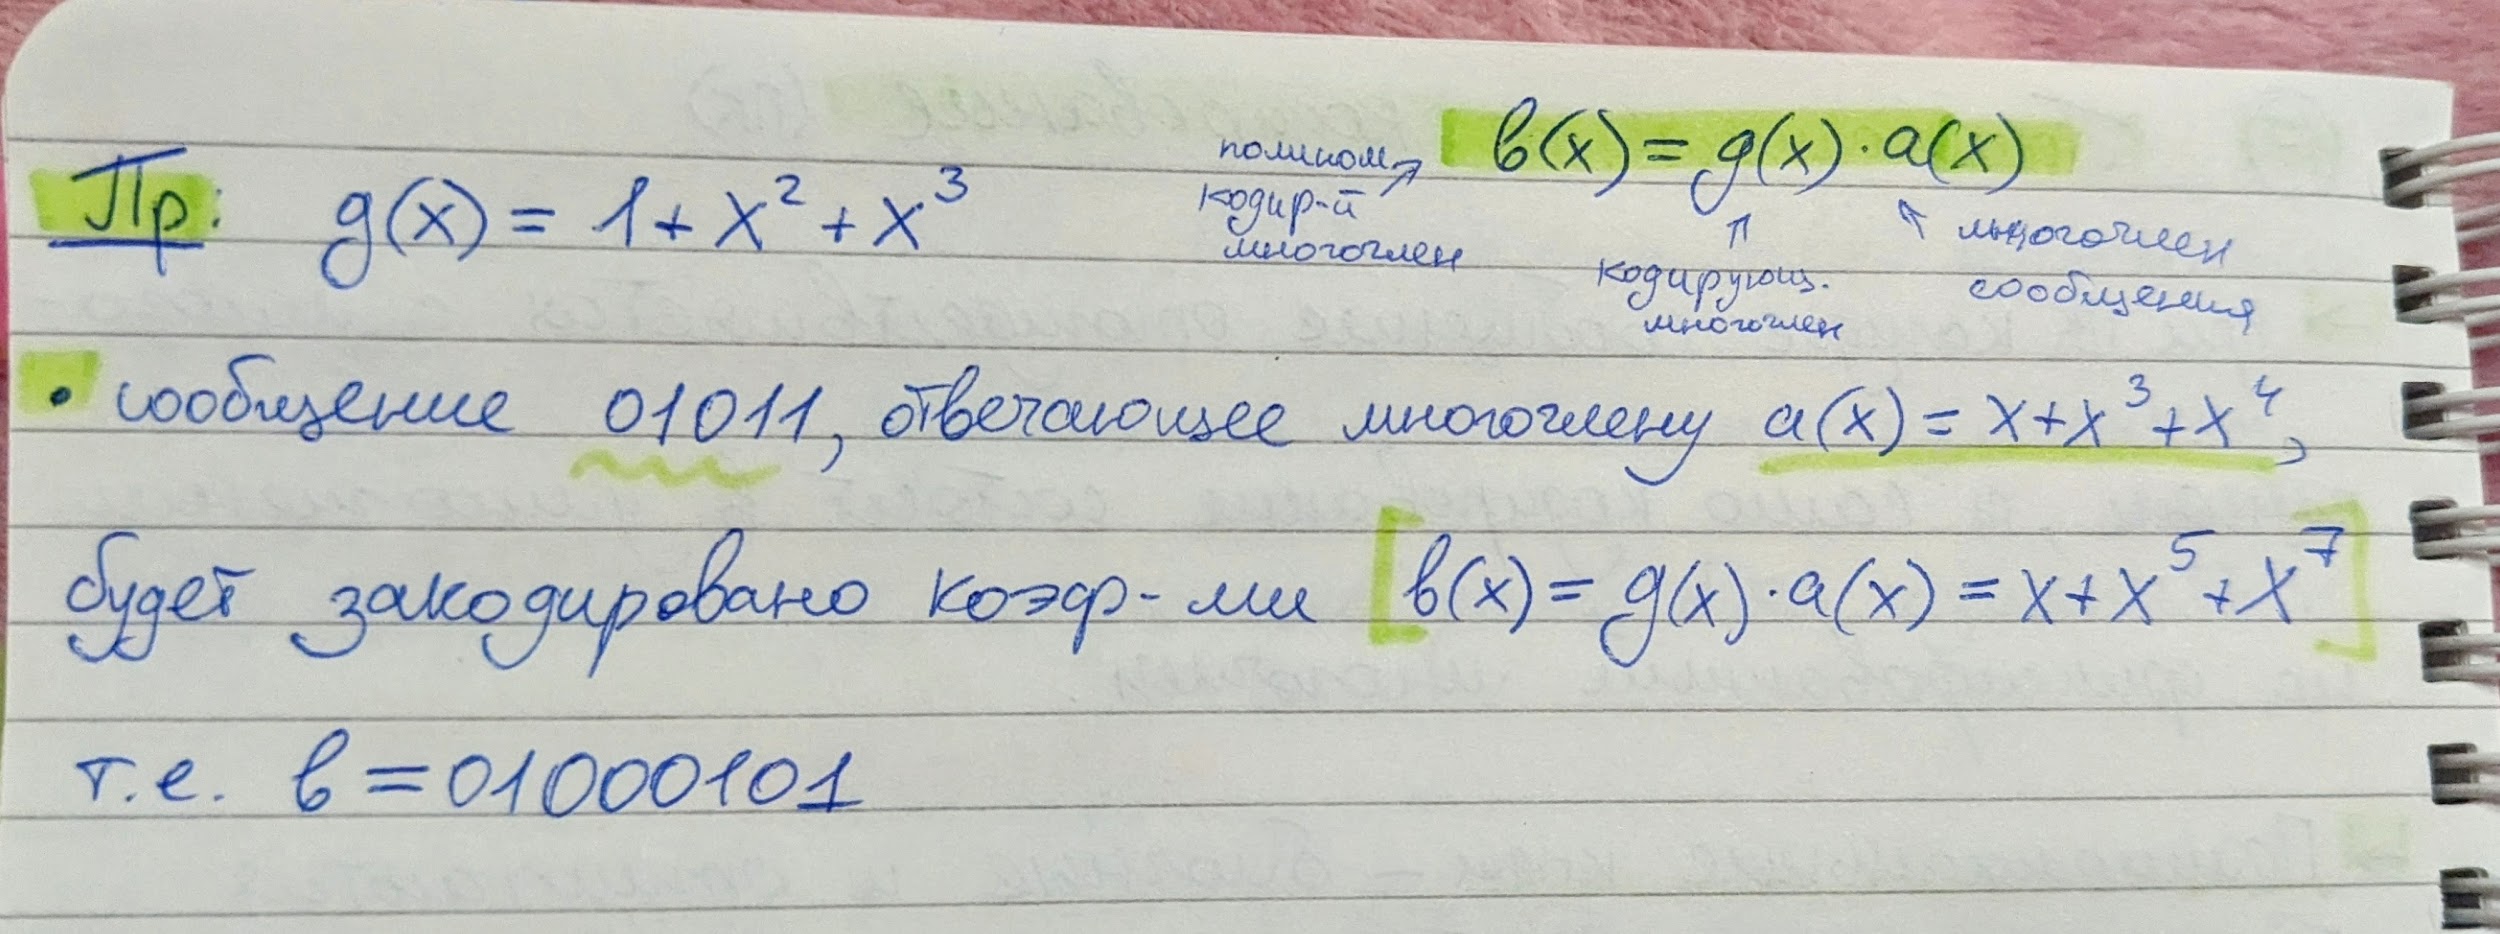 b(x) = g(x)·a(x)
Пр: g(x) = 1 + x² + x³
полином
кодир-й
многочлен
кодирующ.
многочлен
многочлен
сообщения
• сообщение 01011, отвечающее многочлену a(x) = x + x³ + x⁴,
будет закодировано коэф-ми [b(x) = g(x)·a(x) = x + x⁵ + x⁷]
т.е. b = 01000101